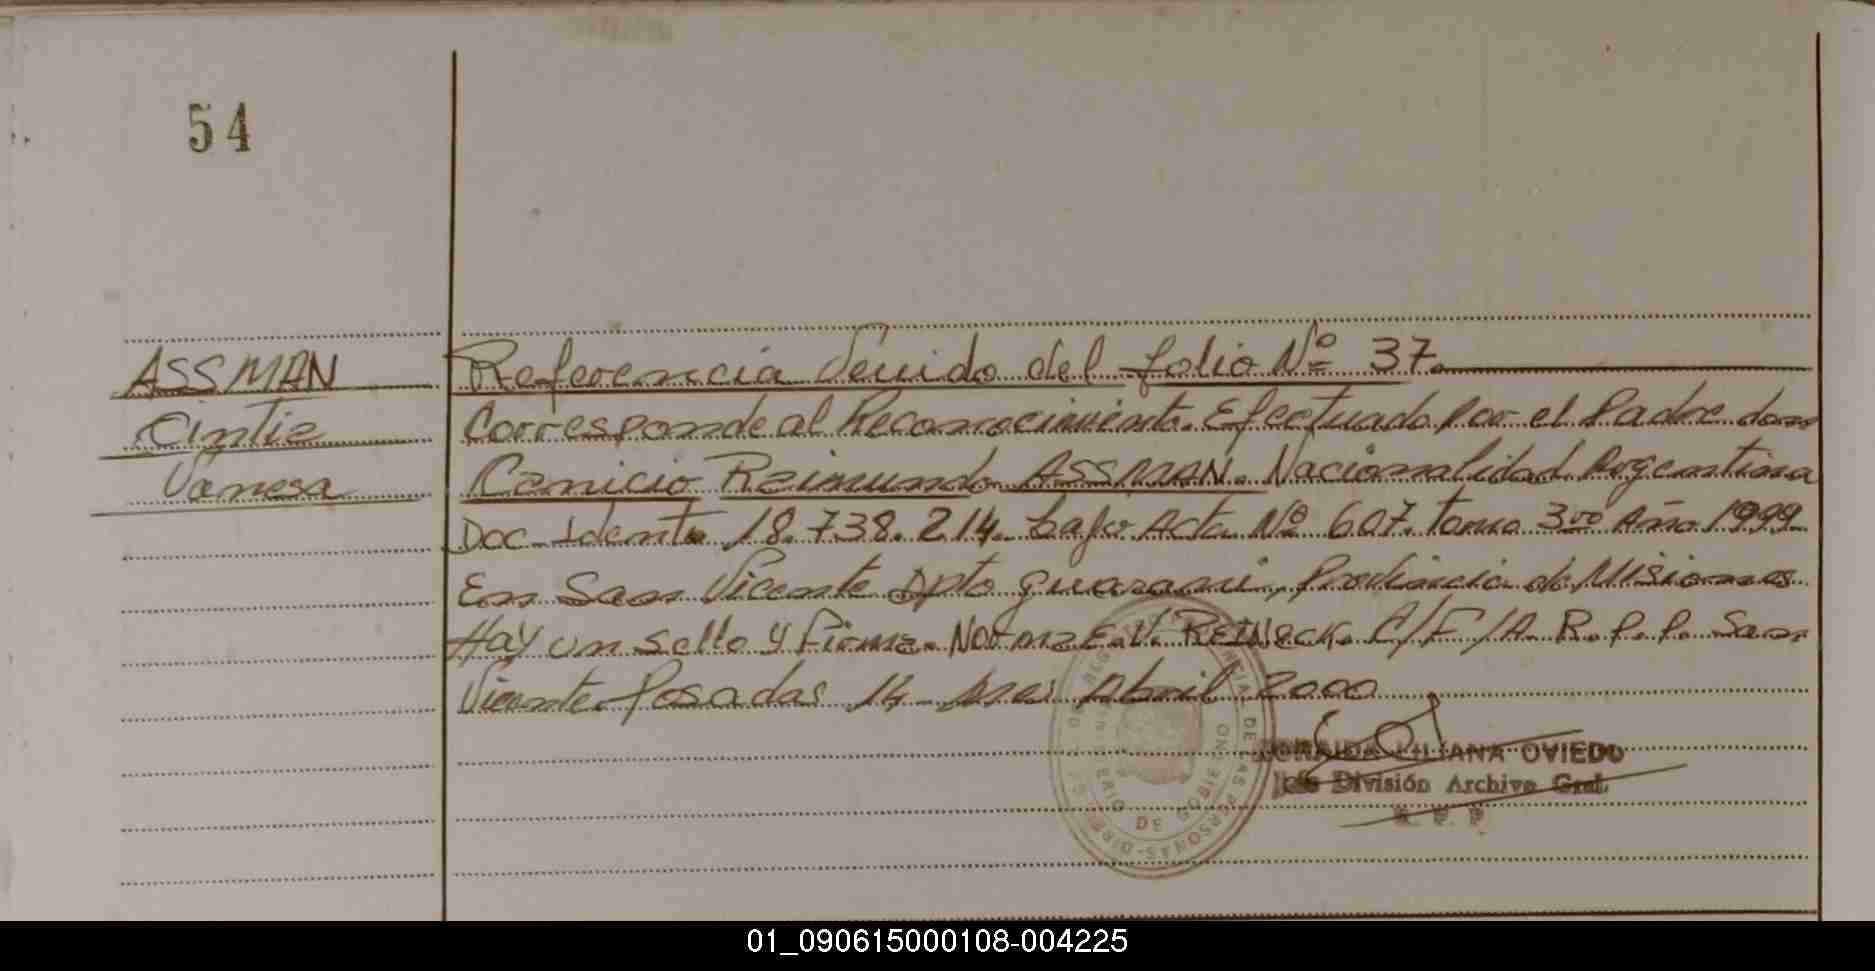 54
ASSMAN
Cintia
Vanesa
Referencia Venido del folio Nº 37.
Corresponde al Reconocimiento. Efectuado por el Padre don
Canicio Raimundo ASSMAN. Nacionalidad Argentina
Doc. Ident. 18.738.214. bajo Acta Nº 607. tomo 3ro Año 1999
En San Vicente Dpto guarani, Provincia de Misiones
Hay un sello y firma. Norma E.V. REINECK. C/F/A. R.P.P. San
Vicente Posadas 14 mes Abril 2000
LILIANA OVIEDO
Jefe División Archivo Gral.
R. P. P.
DE LAS PERSONAS-DIREC
DE GOBIE NO
01_090615000108-004225